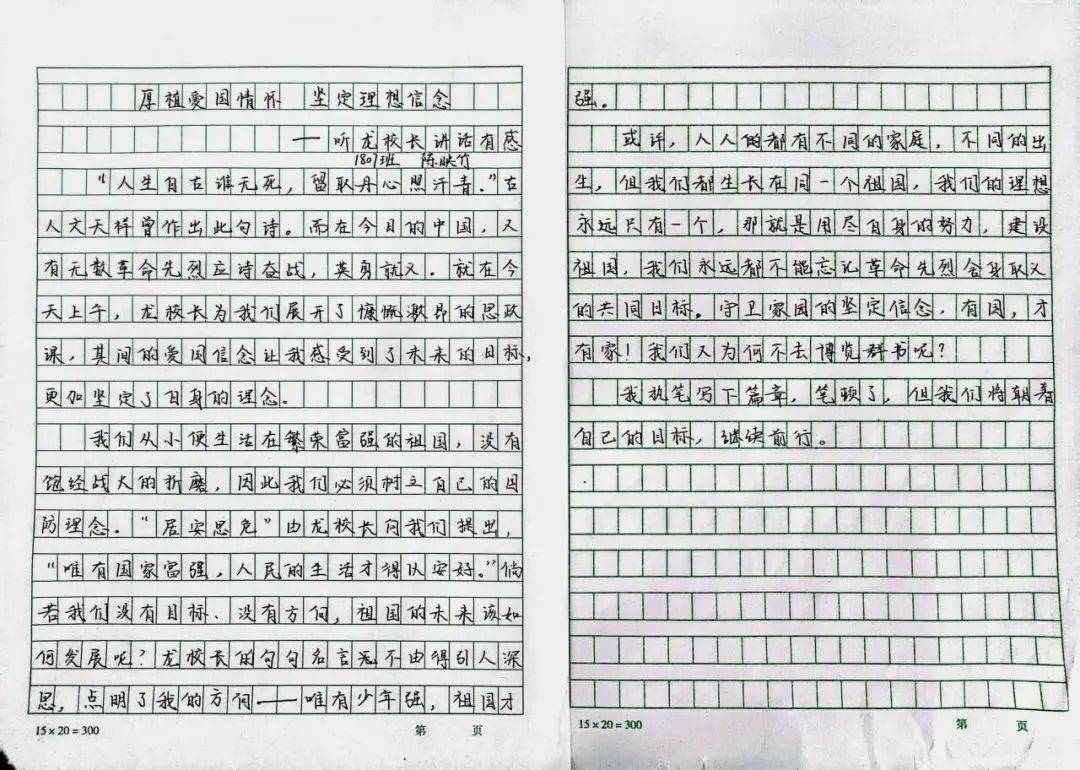 厚植爱国情怀 坚定理想信念
——听龙校长讲话有感
1807班 陈映竹
"人生自古谁无死，留取丹心照汗青。"古
人文天祥曾作出此句诗。而在今日的中国，又
有无数革命先烈应诗奋战，英勇就义。就在今
天上午，龙校长为我们展开了慷慨激昂的思政
课，其间的爱国信念让我感受到了未来的目标，
更加坚定了自身的理念。
我们从小便生活在繁荣富强的祖国，没有
饱经战火的折磨，因此我们必须树立自己的国
防理念。"居安思危"由龙校长向我们提出，
"唯有国家富强，人民的生活才得以安好。"倘
若我们没有目标、没有方向，祖国的未来该如
何发展呢？龙校长的句句名言无不由得引人深
思，点明了我的方向——唯有少年强，祖国才
15×20=300
第 页
强。
或许，人人的都有不同的家庭，不同的出
生，但我们都生长在同一个祖国，我们的理想
永远只有一个，那就是用尽自身的努力，建设
祖国，我们永远都不能忘记革命先烈舍身取义
的共同目标。守卫家园的坚定信念，有国，才
有家！我们又为何不去博览群书呢？
我执笔写下篇章，笔顿了，但我们将朝着
自己的目标，继续前行。
15×20=300
第 页